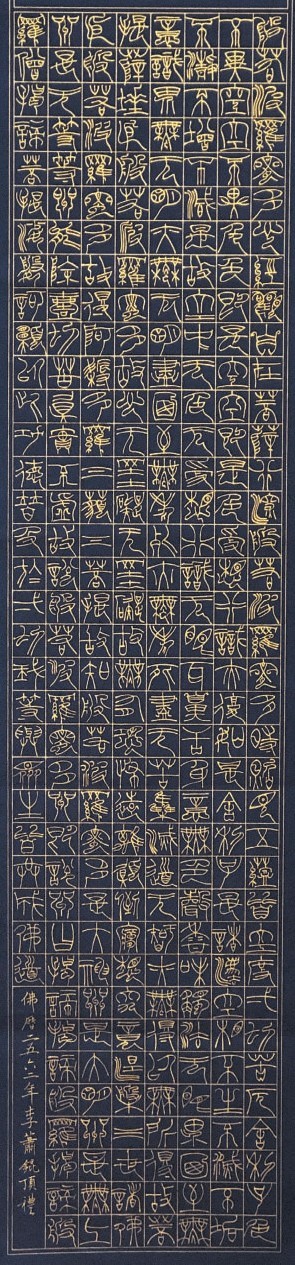 般若波羅蜜多心經觀自在菩薩行深般若波羅蜜多時照見五蘊皆空度一切苦厄舍利子色
不異空空不異色色即是空空即是色受想行識亦復如是舍利子是諸法空相不生不滅不垢
不淨不增不減是故空中無色無受想行識無眼耳鼻舌身意無色聲香味觸法無眼界乃至無
意識界無無明亦無無明盡乃至無老死亦無老死盡無苦集滅道無智亦無得以無所得故菩
提薩埵依般若波羅蜜多故心無罣礙無罣礙故無有恐怖遠離顛倒夢想究竟涅槃三世諸佛
依般若波羅蜜多故得阿耨多羅三藐三菩提故知般若波羅蜜多是大神咒是大明咒是無上
咒是無等等咒能除一切苦真實不虛故說般若波羅蜜多咒即說咒曰揭諦揭諦波羅揭諦波
羅僧揭諦菩提薩婆訶願以此功德普及於一切我等與眾生皆共成佛道
佛曆二五六二年李蕭錕頂禮